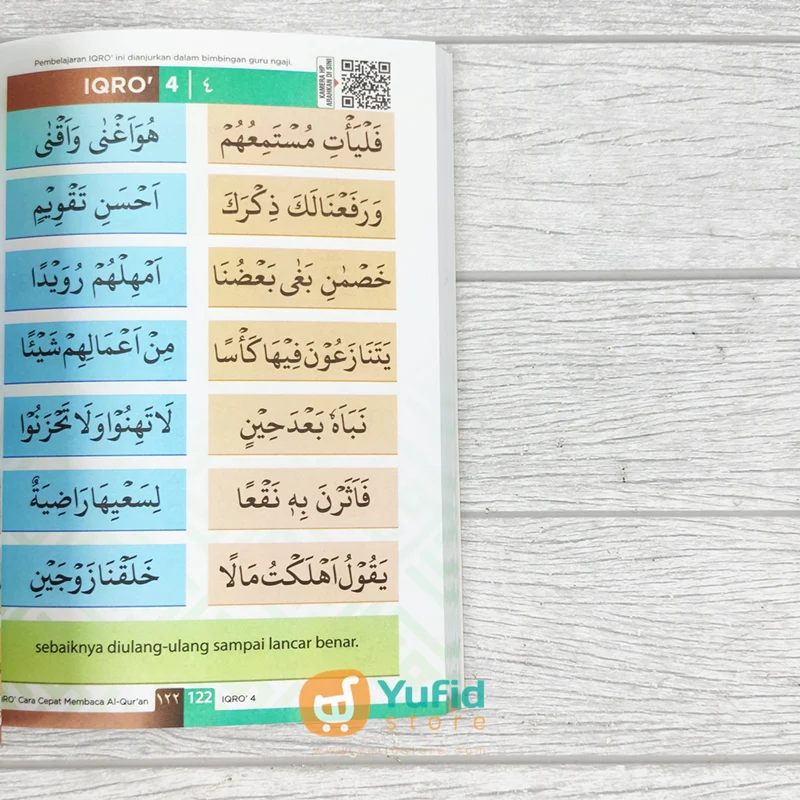 Pembelajaran IQRO' ini dianjurkan dalam bimbingan guru ngaji.
IQRO' 4 | ٤
KAMERA HP
ARAHKAN DI SINI
فَلْيَأْتِ مُسْتَمِعُهُمْ
هُوَاَغْنٰى وَاَقْنٰى
وَرَفَعْنَالَكَ ذِكْرَكَ
اَحْسَنِ تَقْوِيْمٍ
خَصْمٰنِ بَغٰى بَعْضُنَا
اَمْهِلْهُمْ رُوَيْدًا
يَتَنَازَعُوْنَ فِيْهَا كَأْسًا
مِنْ اَعْمَالِهِمْ شَيْئًا
نَبَاَهٗ بَعْدَحِيْنٍ
لَا تَهِنُوْا وَلَا تَحْزَنُوْا
فَاَثَرْنَ بِهٖ نَقْعًا
لِسَعْيِهَا رَاضِيَةٌ
يَقُوْلُ اَهْلَكْتُ مَالًا
خَلَقْنَا زَوْجَيْنِ
sebaiknya diulang-ulang sampai lancar benar.
IRO' Cara Cepat Membaca Al-Qur'an ١٢٢ 122 IQRO' 4
Yufid
store